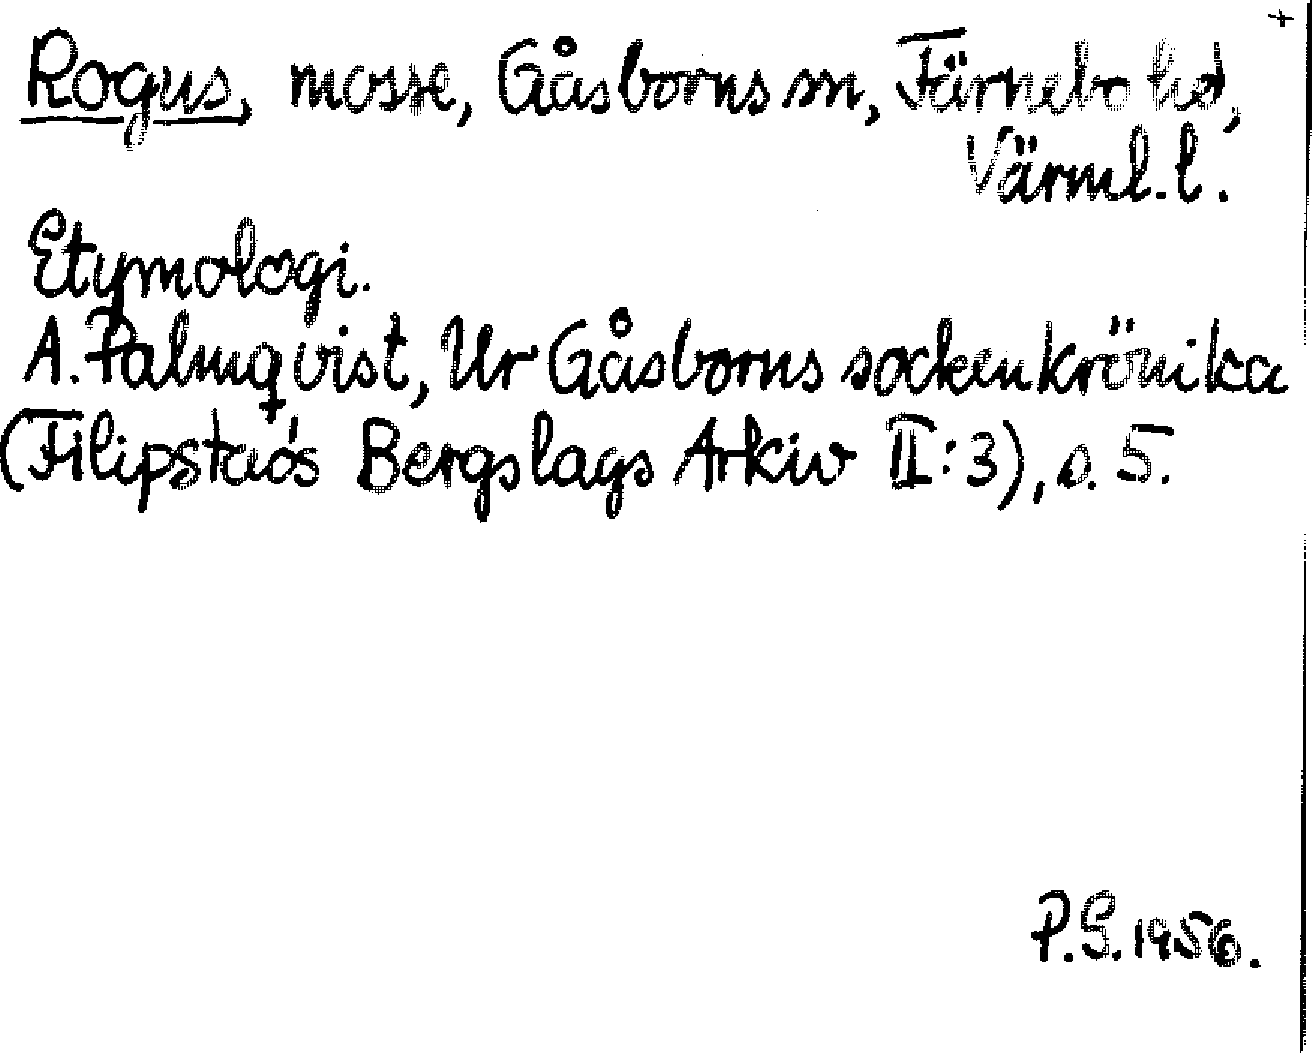 +
Rogus, mosse, Gåsborns sn, Färnebo hd,
Värml. l.
Etymologi.
A. Palmqvist, Ur Gåsborns sockenkrönika
(Filipstads Bergslags Arkiv II:3), s. 5.
P.G. 1956.